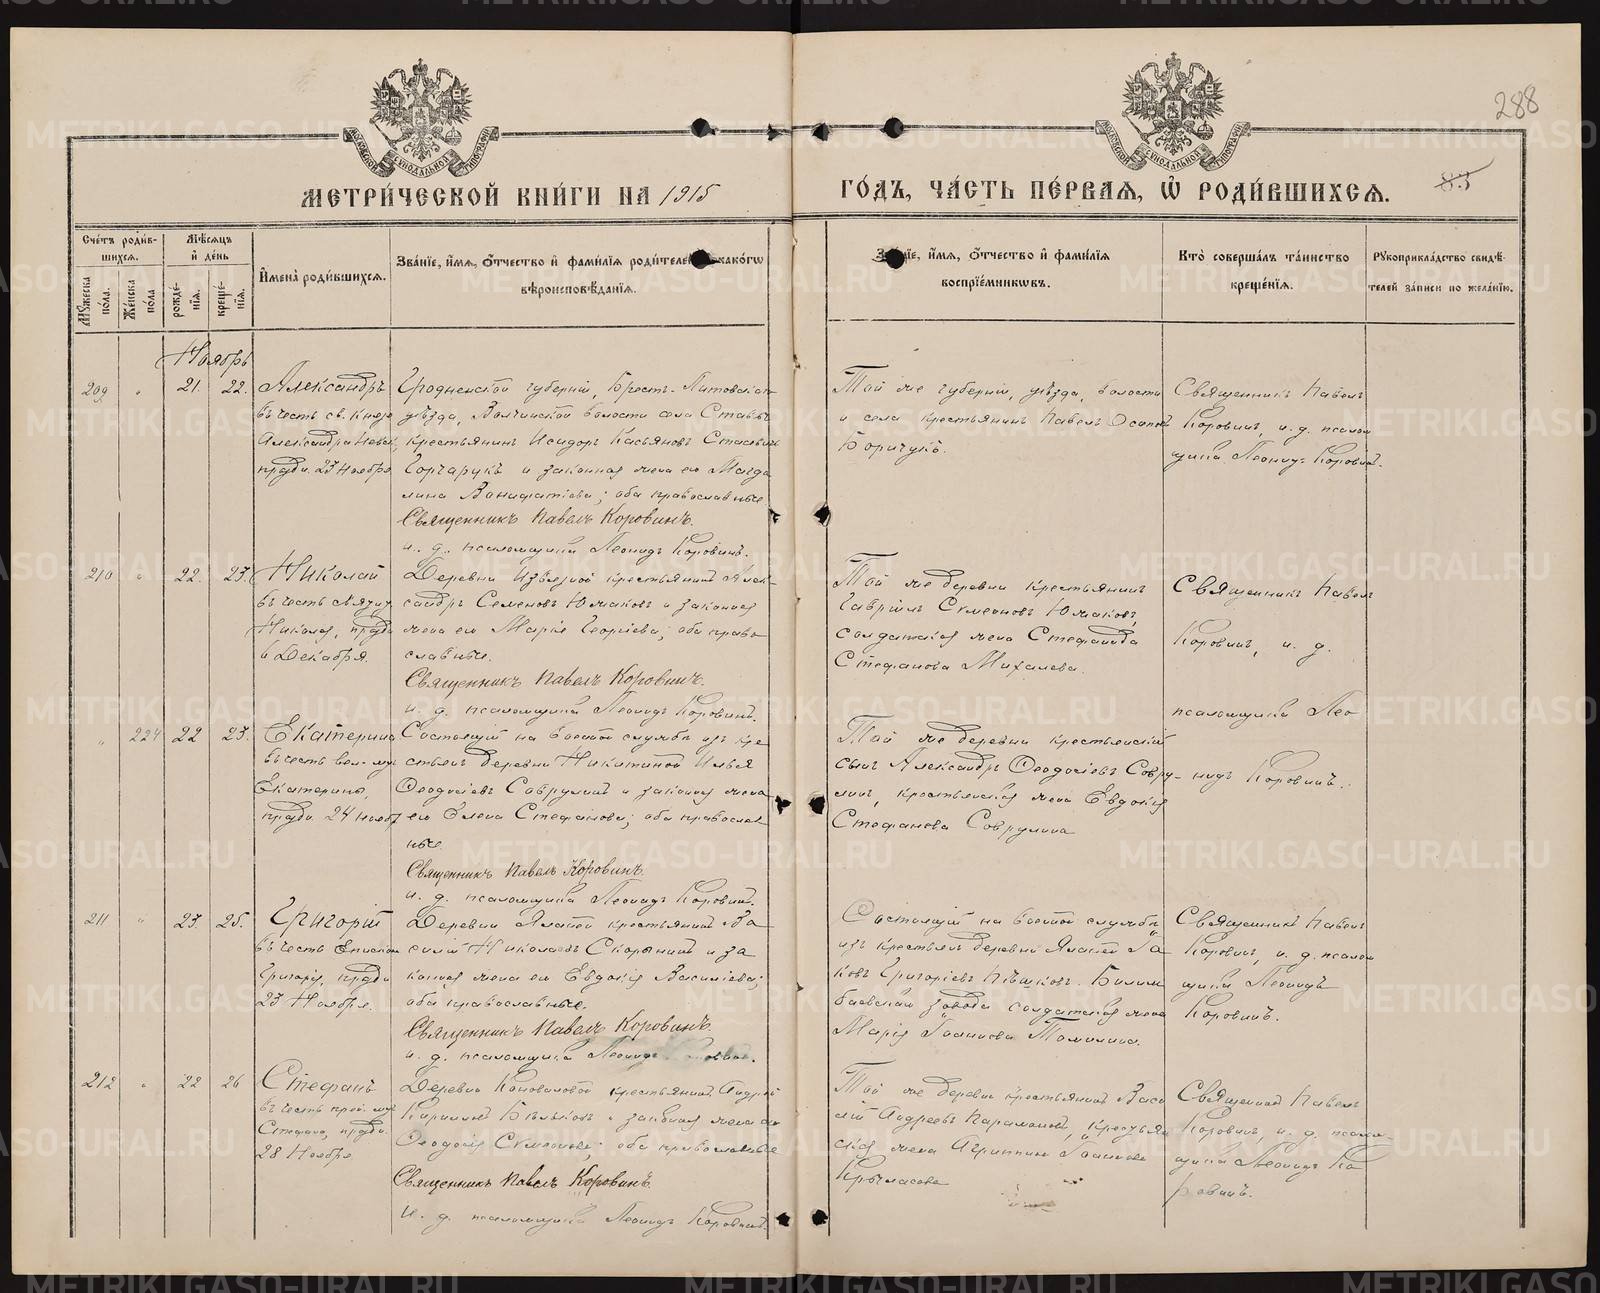 288
МЕТРИ́ЧЕСКОЙ КНИ́ГИ НА 1915
ГО́ДЪ, ЧА́СТЬ ПЕ́РВАѦ, Ѡ РОДИ́ВШИХСѦ.
Сче́тъ роди́в-
шихсѧ.
Мꙋжеска по́ла.
Же́нска по́ла
Мѣ́сѧцъ
и҆ де́нь
рожде́-
нїѧ.
креще́-
нїѧ.
И҆мена̀ роди́вшихсѧ.
Зва́нїе, и҆́мѧ, ѻ҆́тчество и҆ фами́лїѧ роди́телей како́гѡ
вѣроисповѣ́данїѧ.
и҆́мѧ, ѻ҆́тчество и҆ фами́лїѧ
воспрїе́мникѡвъ.
Кто̀ соверша́лъ та́инство
креще́нїѧ.
Рꙋкоприкла́дство свидѣ́-
телей за́писи по жела́нїю.
Ноябрь
209 " 21. 22.
Александръ
въ честь св. Князя
Александра Невск,
праздн. 23 Ноября
Гродненской губерніи, Брестъ-Литовскаго
уѣзда, Волчинской волости села Ставъ
крестьянинъ Исидоръ Касьяновъ
Гончарукъ и законная жена его Магда
лина Вонифатіева; оба православные
Священникъ Павелъ Коровинъ.
и. д. псаломщика Леонидъ Коровинъ.
Той же губерніи, уѣзда, волости
и села крестьянинъ Павелъ Осиповъ
Священникъ Павелъ
Коровинъ, и. д. псалом
щика Леонидъ Коровинъ.
210 " 22. 23.
Николай
въ честь
Николая, праздн
6 Декабря.
Деревни крестьянинъ Алек-
сандръ Семеновъ Южаковъ и законная
жена его Марія Георгіева; оба право
славные.
Священникъ Павелъ Коровинъ.
и. д. псаломщика Леонидъ Коровинъ.
Той же деревни крестьянинъ
Гавріилъ Сѵмеоновъ Южаковъ,
солдатская жена Стефанида
Стефанова Михалева.
Священникъ Павелъ
Коровинъ, и. д.
псаломщика Лео
нидъ Коровинъ.
" 224 22 23.
Екатерина
въ честь вел. муч
Екатерины,
праздн. 24 Нояб
Состоящій на военной службѣ изъ кре
стьянъ деревни Никитиной Илья
Ѳеодосіевъ Соврулинъ и законная жена
его Елена Стефанова; оба православ
ные.
Священникъ Павелъ Коровинъ.
и. д. псаломщика Леонидъ Коровинъ.
Той же деревни крестьянскій
сынъ Александръ Ѳеодосіевъ Совру-
линъ, крестьянская жена Евдокія
Стефанова Соврулина
211 " 23. 25.
Григорій
въ честь Епископа
Григорія, праздн
23 Ноября.
Деревни крестьянинъ Ва
силій Николаевъ Скорынинъ и за
конная жена его Евдокія Василіева;
оба православные.
Священникъ Павелъ Коровинъ.
и. д. псаломщика Леонидъ Коровинъ.
Состоящій на военной службѣ
изъ крестьянъ деревни Іа
ковъ Григоріевъ Пѣшковъ. Билим
баевскаго завода солдатская жена
Марія Іоаннова Томилина.
Священникъ Павелъ
Коровинъ, и. д. псалом
щика Леонидъ
Коровинъ.
212 " 22 26
Стефанъ
въ честь преп. муч
Стефана, праздн.
28 Ноября
Деревни Коноваловой крестьянинъ Андрей
Кирилловъ Бѣльковъ и законная жена его
Ѳеодосія Сѵмеонова; оба православные
Священникъ Павелъ Коровинъ.
и. д. псаломщика Леонидъ Коровинъ.
Той же деревни крестьянинъ Васи
лій Андреевъ Карамановъ, крестьян
ская жена Агриппина Іоаннова
Священникъ Павелъ
Коровинъ, и. д. псалом
щика Леонидъ Ко
ровинъ.
METRIKI.GASO-URAL.RU